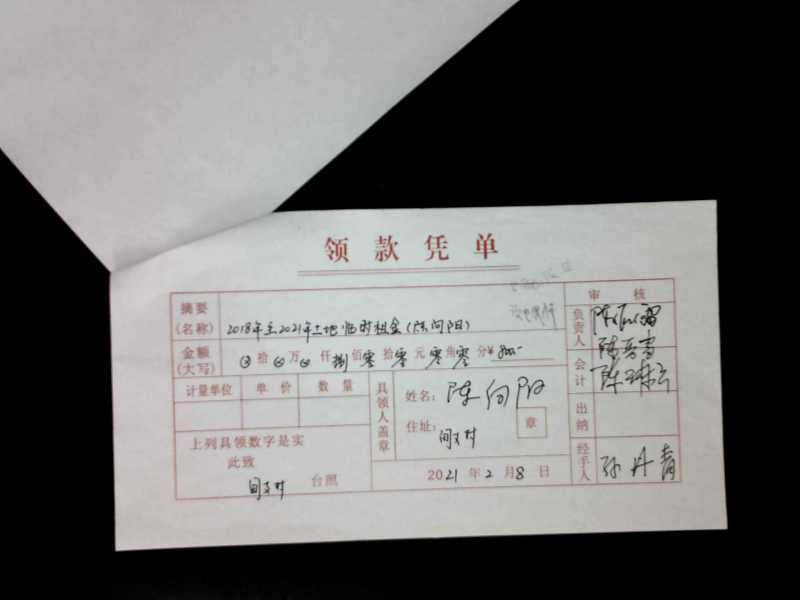 领款凭单
审 核
摘要
(名称) 2018年至2021年土地临时租金(陈向阳)
金额
(大写) 拾 万 仟 捌 佰 零 拾 零 元 零 角 零 分 ¥ 800-
负责人
会计
计量单位 单价 数量
具领人盖章
姓名: 陈向阳
住址:
章
出纳
上列具领数字是实
此致
台照
2021年2月8日
经手人 孙丹青